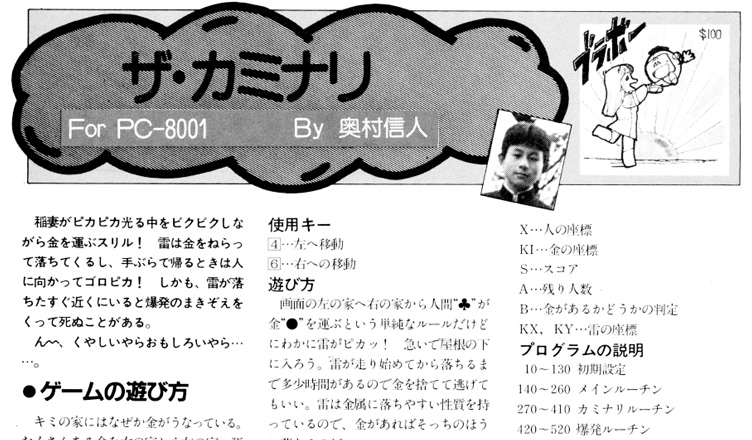 ザ・カミナリ
For PC-8001 By 奥村信人
ブラボー
$100
稲妻がピカピカ光る中をビクビクしな
がら金を運ぶスリル! 雷は金をねらっ
て落ちてくるし、手ぶらで帰るときは人
に向かってゴロピカ! しかも、雷が落
ちたすぐ近くにいると爆発のまきぞえを
くって死ぬことがある。
ん〜〜、くやしいやらおもしろいやら……
…。
●ゲームの遊び方
キミの家にはなぜか金がうなっている。
使用キー
4…左へ移動
6…右への移動
遊び方
画面の左の家へ右の家から人間“♣”が
金“●”を運ぶという単純なルールだけど
にわかに雷がピカッ! 急いで屋根の下
に入ろう。雷が走り始めてから落ちるま
で多少時間があるので金を捨てて逃げて
もいい。雷は金属に落ちやすい性質を持
っているので、金があればそっちのほう
X…人の座標
KI…金の座標
S…スコア
A…残り人数
B…金があるかどうかの判定
KX, KY…雷の座標
プログラムの説明
10〜130 初期設定
140〜260 メインルーチン
270〜410 カミナリルーチン
420〜520 爆発ルーチン